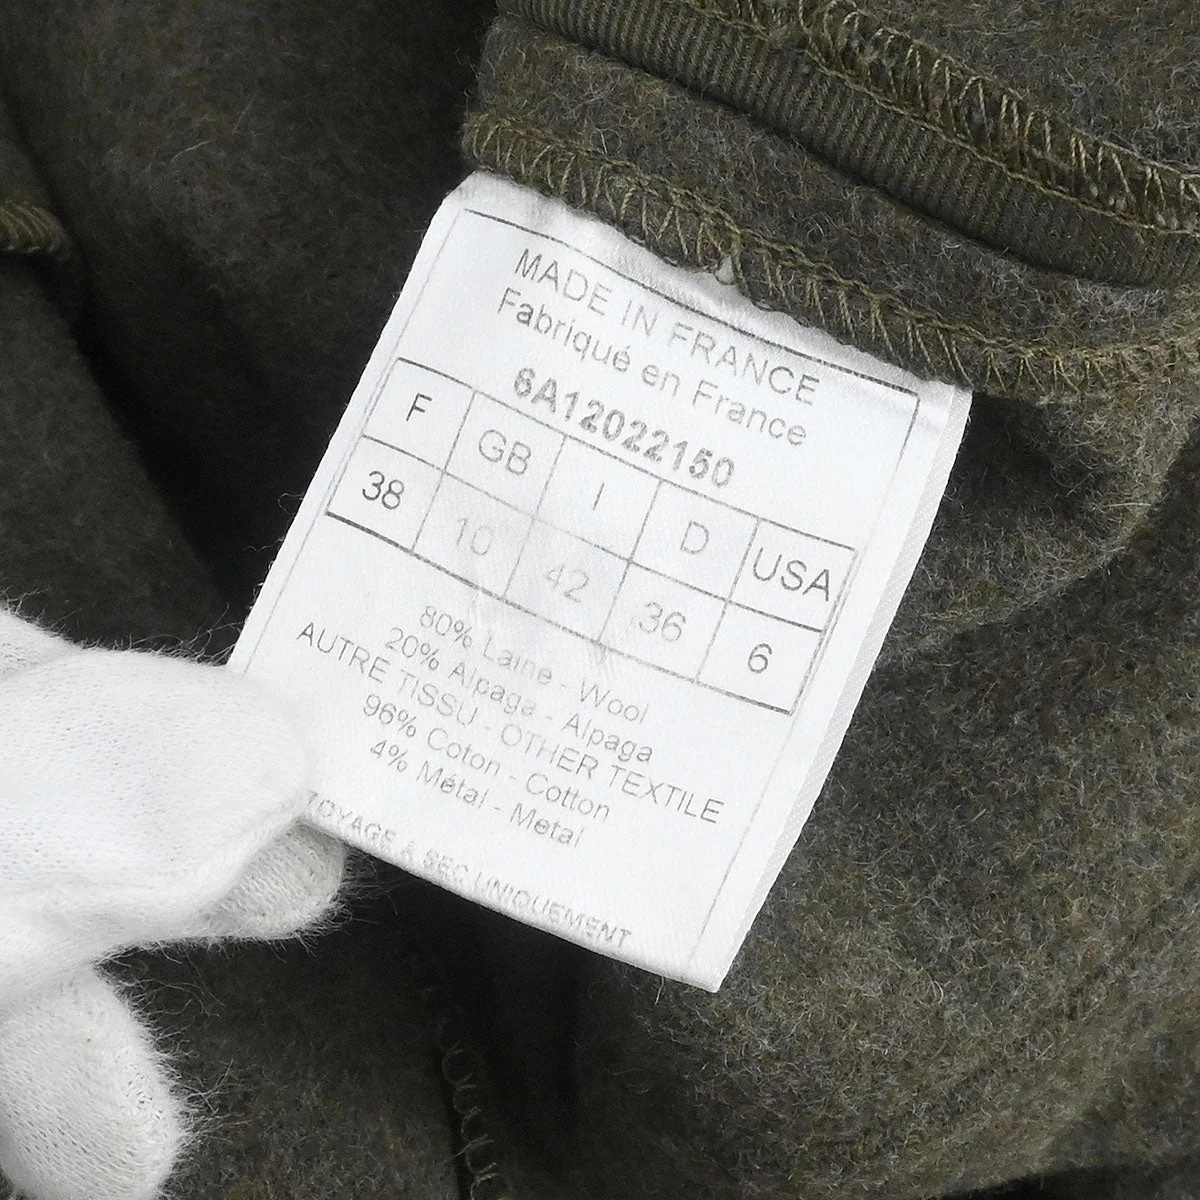 MADE IN FRANCE
Fabriqué en France
6A12022150
F GB I D USA
38 10 42 36 6
80% Laine - Wool
20% Alpaga - Alpaga
AUTRE TISSU - OTHER TEXTILE
96% Coton - Cotton
4% Métal - Metal
TOYAGE A SEC UNIQUEMENT